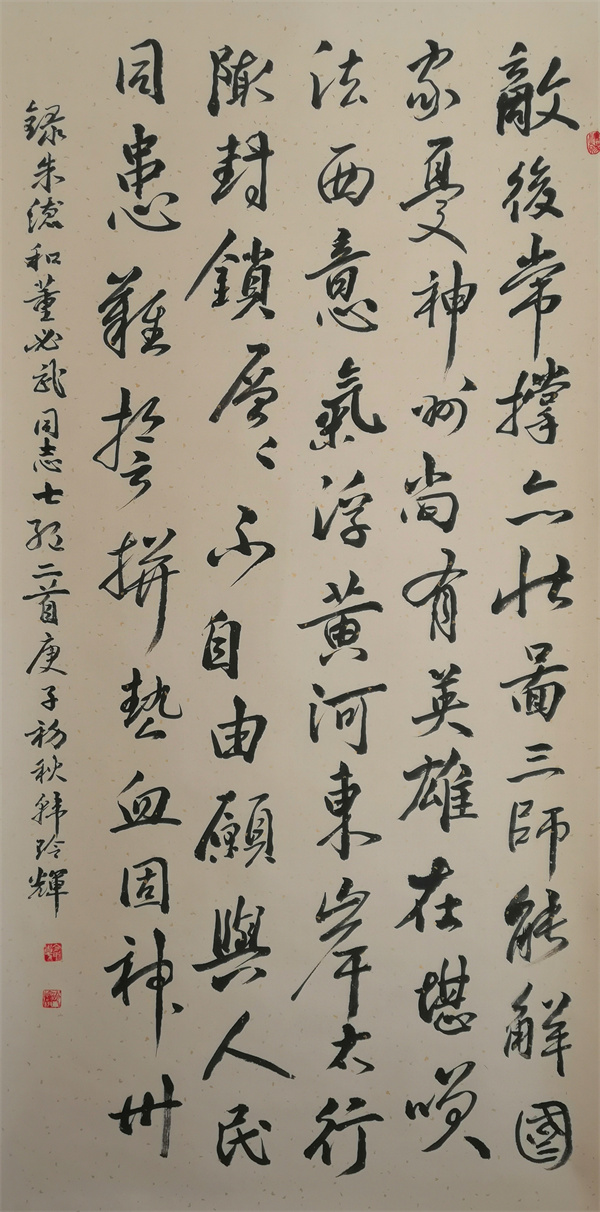 敵後常撐亦壯圖三師能解國
家憂神州尚有英雄在堪咲
法西意氣浮黃河東岸太行
陬封鎖層々不自由願與人民
同患難誓拼熱血固神州
錄朱德和董必武同志七絕二首庚子初秋韓玲輝